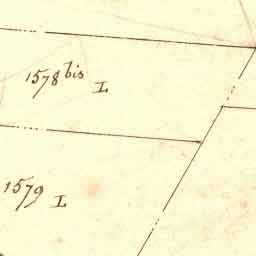 1578 bis L
1579 L